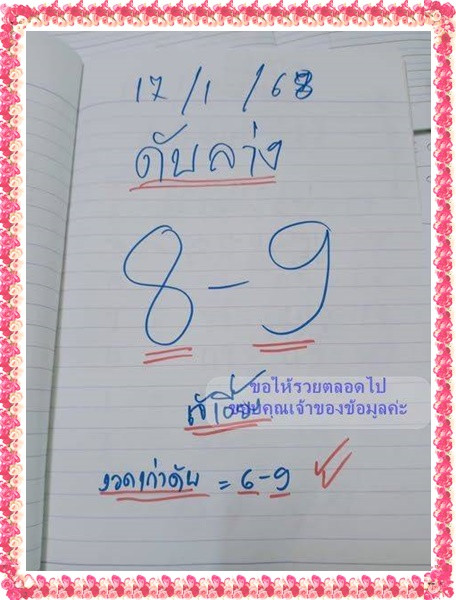 17/1/68
ดับล่าง
8-9
ขอให้รวยตลอดไป
ขอบคุณเจ้าของข้อมูลค่ะ
งวดเก่าดับ = 6-9